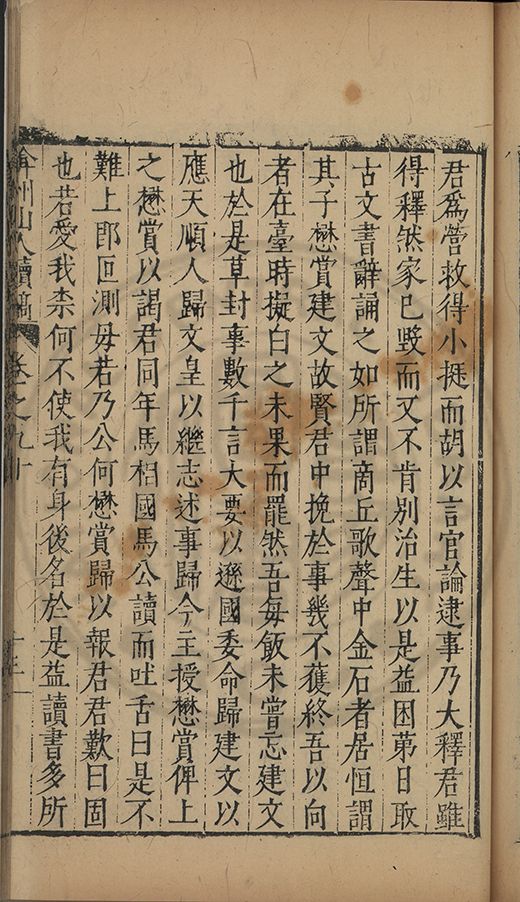 君爲營救得小挺而胡以言官論逮事乃大釋君雖
得釋然家已毀而又不肯別治生以是益困第日取
古文書辭誦之如所謂商丘歌聲中金石者居恒謂
其子懋賞建文故賢君中挽於事幾不獲終吾以向
者在臺時擬白之未果而罷然吾每飯未嘗忘建文
也於是草封事數千言大要以遜國委命歸建文以
應天順人歸文皇以繼志述事歸今主授懋賞俾上
之懋賞以謁君同年馬相國馬公讀而吐舌曰是不
難上郎叵測毋若乃公何懋賞歸以報君君歎曰固
也若愛我柰何不使我有身後名於是益讀書多所
弇州山人續稿 卷之九十 十三